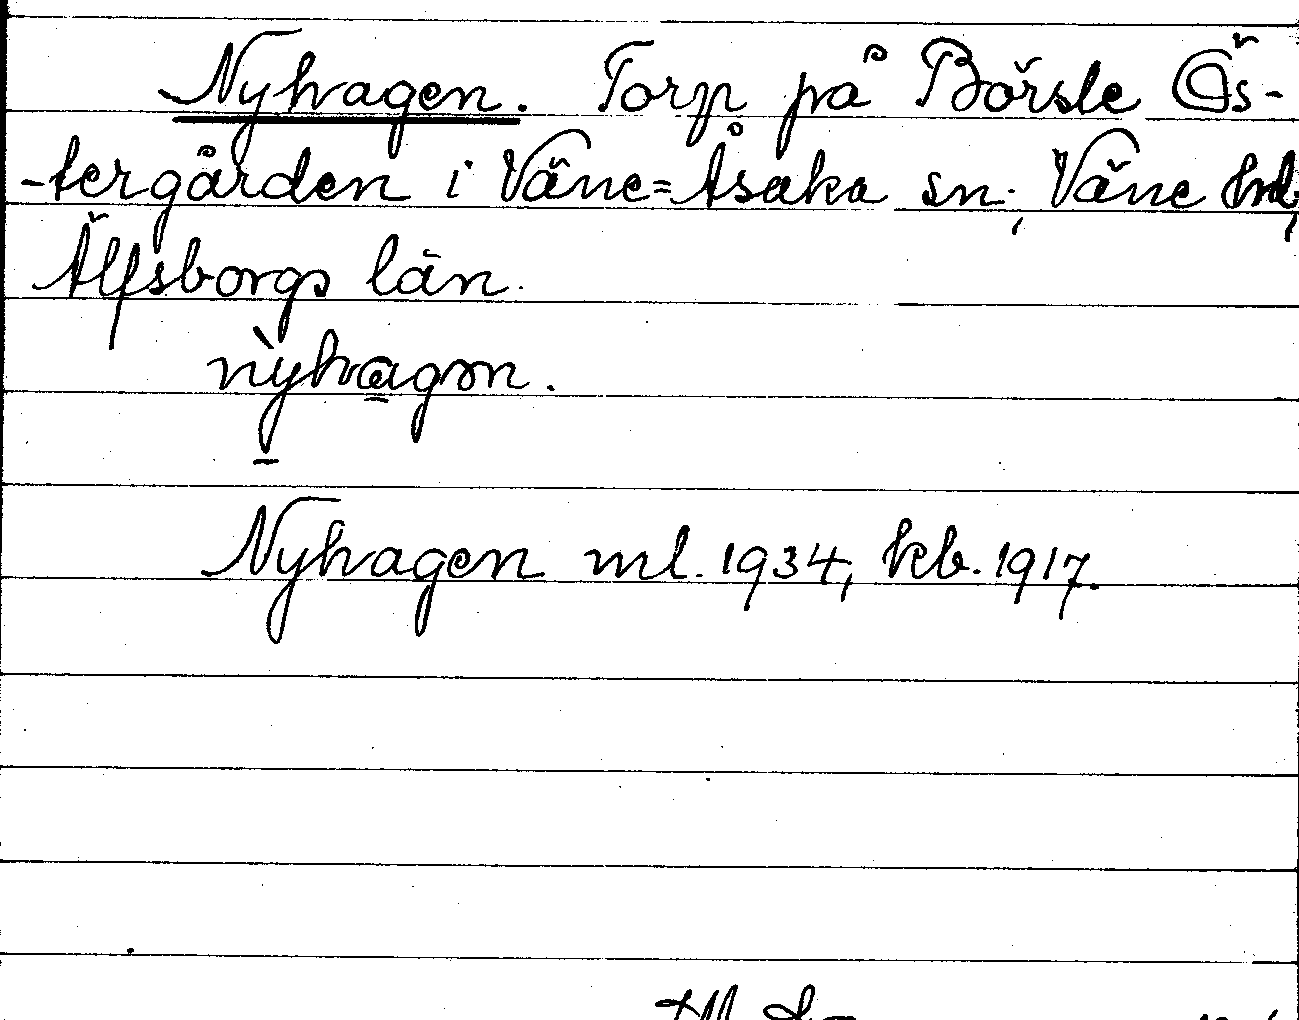 Nyhagen. Torp på Börsle Ös-
-tergården i Väne=Åsaka sn., Väne hd,
Älfsborgs län.
nỳhagən.
Nyhagen ml. 1934, kb. 1917.